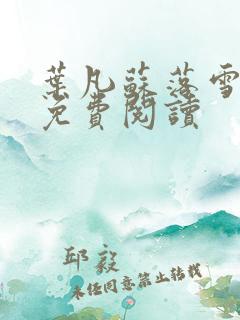 葉凡蘇落雪
免費閱讀
邱毅
未經同意禁止轉載